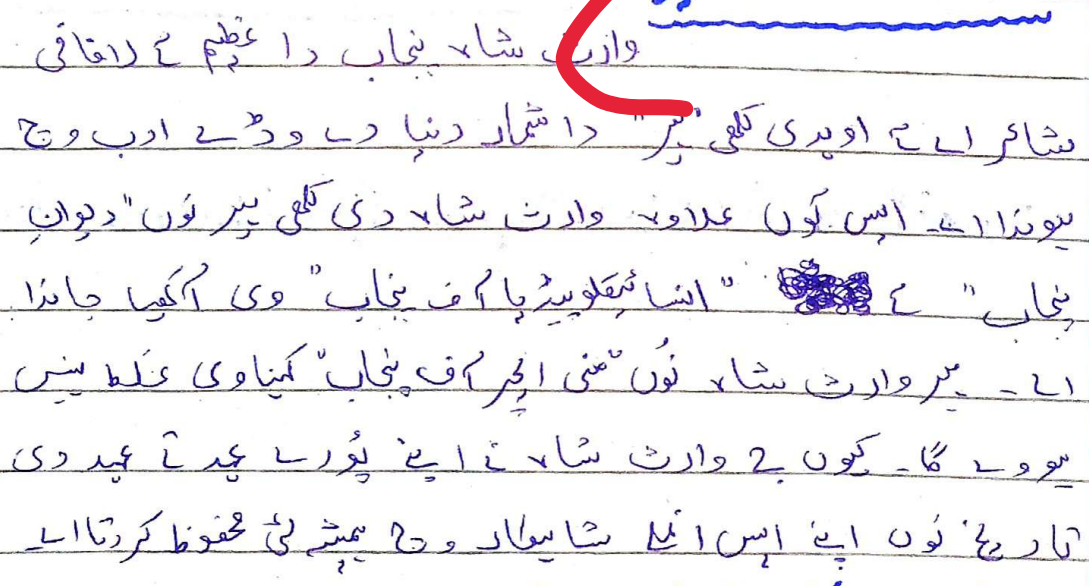 وارث شاہ پنجاب دا عظیم تے آفاقی
شاعر اے تے اوہدی لکھی "ہیر" دا شمار دنیا دے وڈے ادب وچ
ہوندا اے۔ ایس توں علاوہ وارث شاہ دی لکھی ہیر نوں "دیوان
پنجاب" تے "انسائیکلوپیڈیا آف پنجاب" وی آکھیا جاندا
اے۔ ہیر وارث شاہ نوں "منی ایچر آف پنجاب" کہنا وی غلط نہیں
ہووے گا۔ کیوں جے وارث شاہ نے اپنے پُورے عہد تے عہد دی
تاریخ نوں اپنے ایس شاہکار وچ ہمیش لئی محفوظ کر دتا اے۔